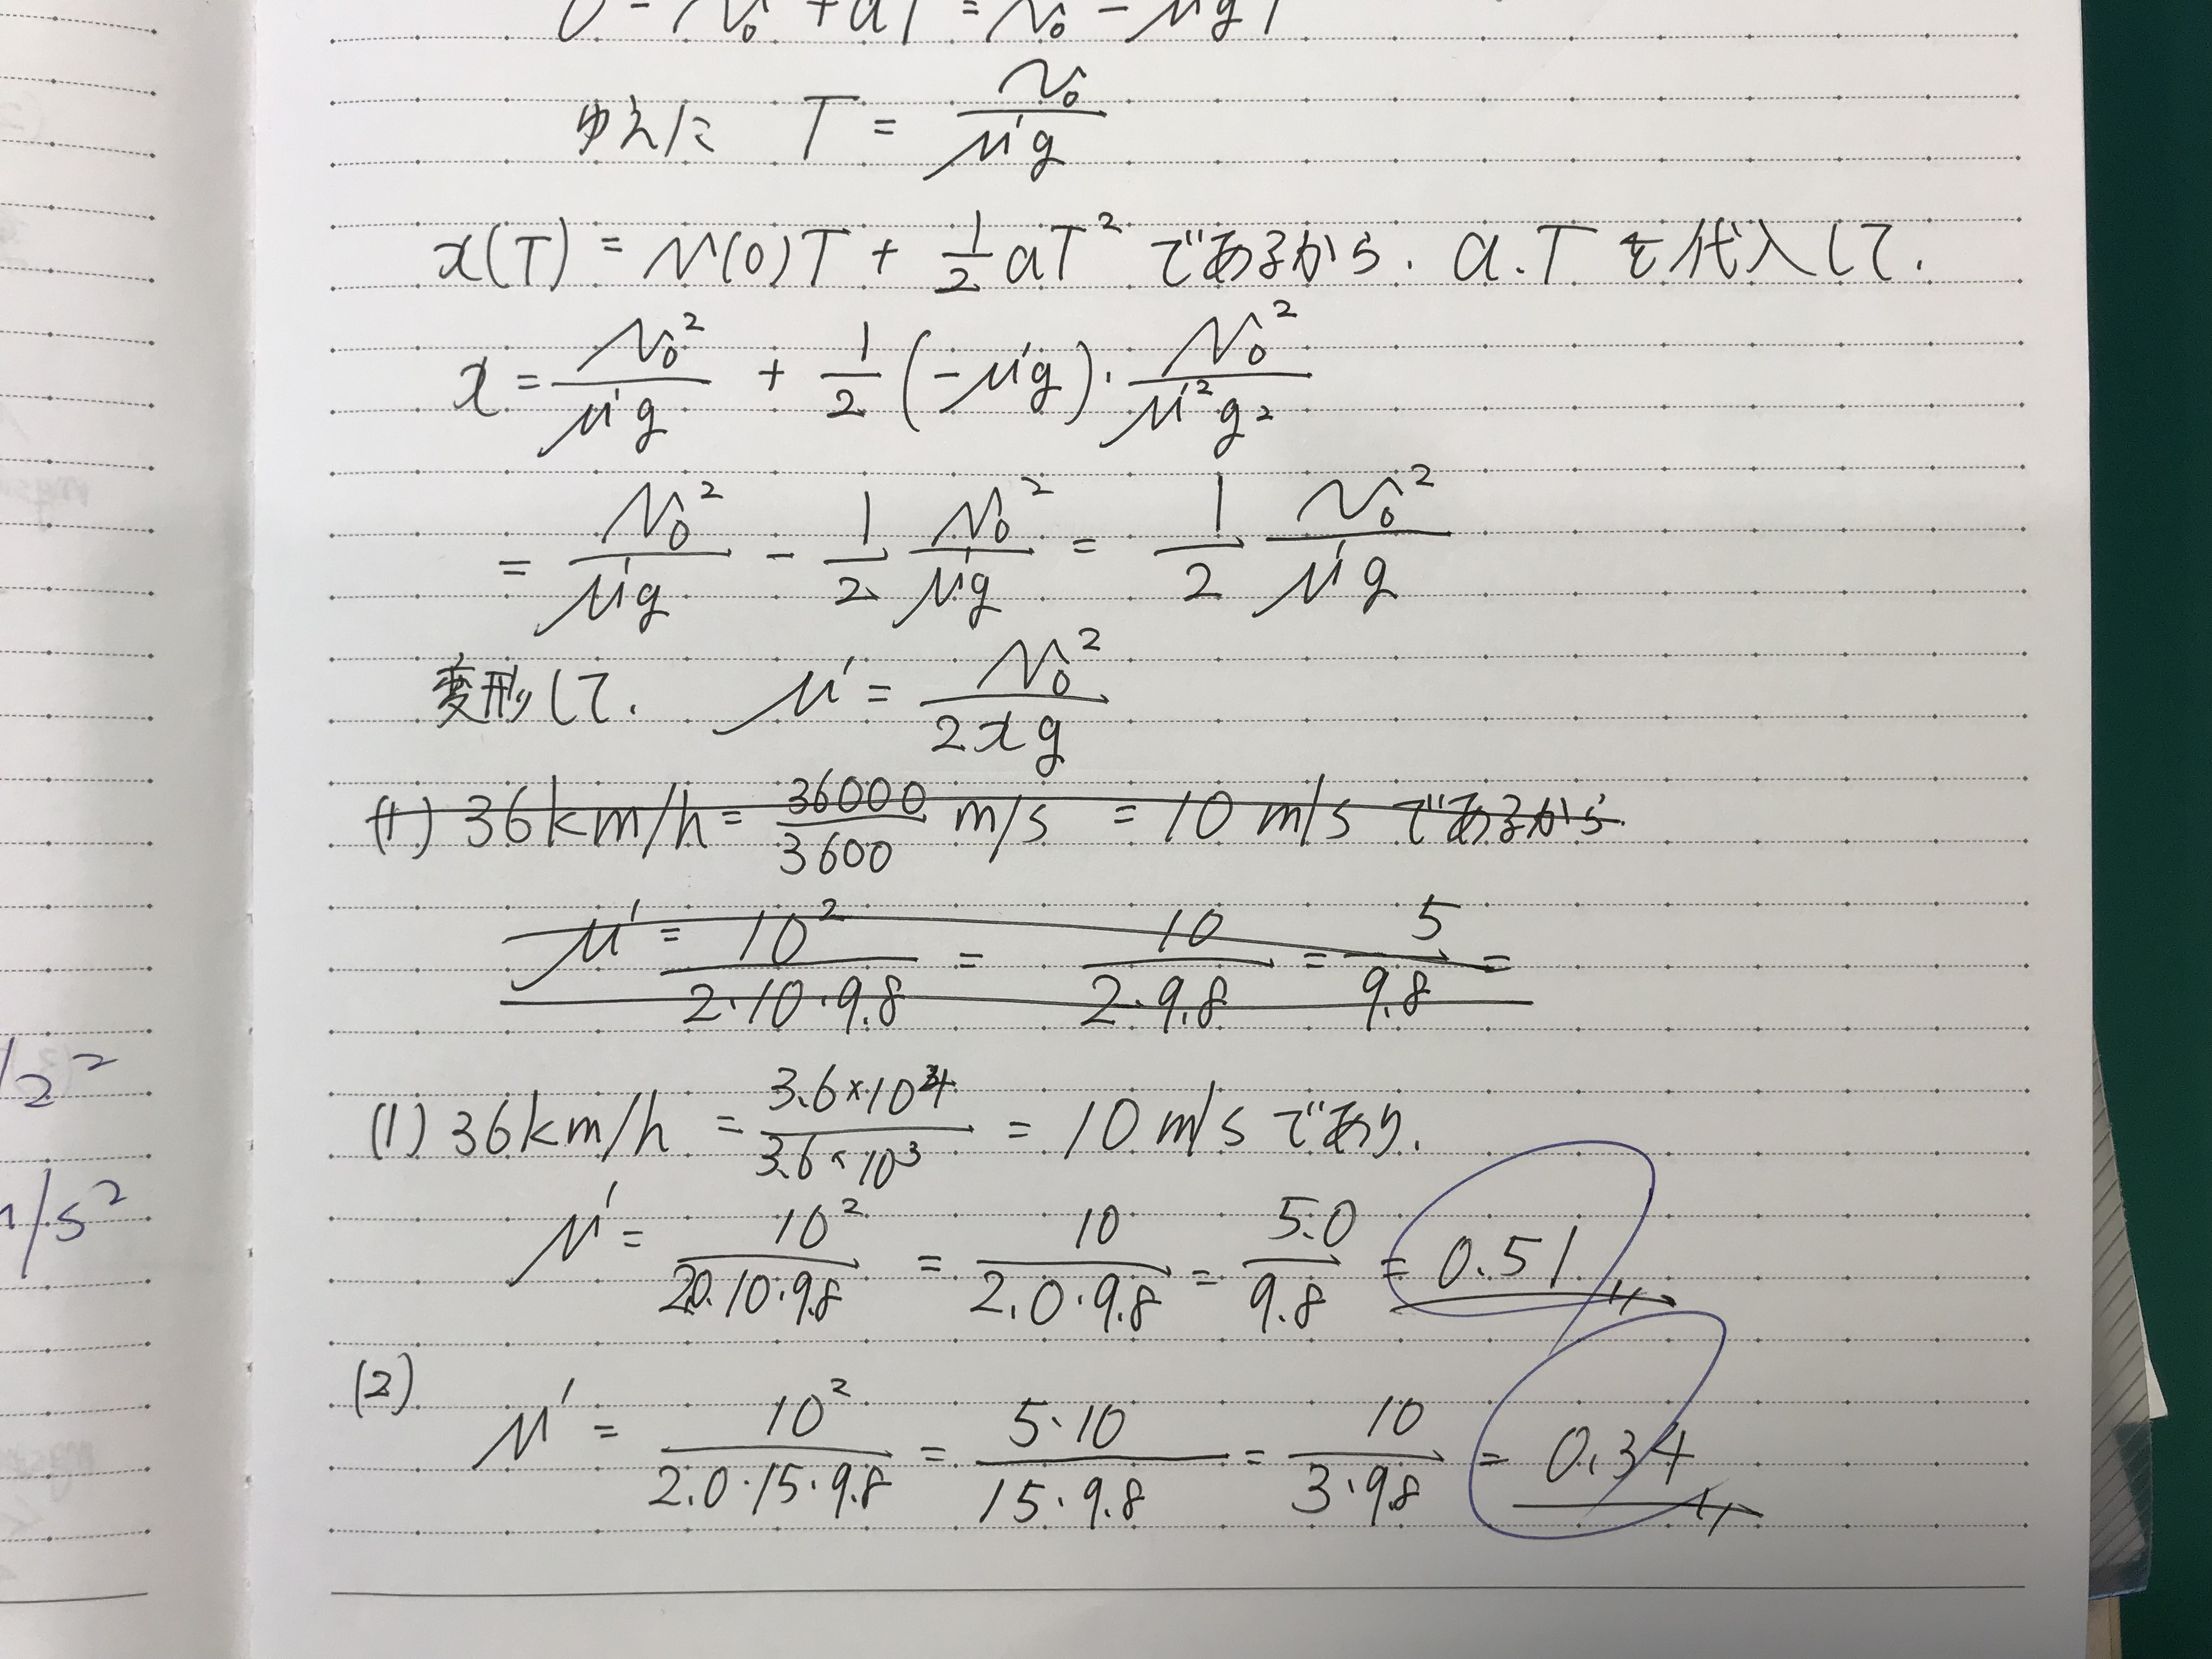 0 = v₀ + aT = v₀ - μ'gT
ゆえに T = v₀/μ'g
x(T) = v(0)T + 1/2 aT² であるから. a.Tを代入して.
x = v₀²/μ'g + 1/2 (-μ'g)・v₀²/μ'²g²
= v₀²/μ'g - 1/2 v₀²/μ'g = 1/2 v₀²/μ'g
変形して. μ' = v₀²/2xg
(1) 36km/h = 36000/3600 m/s = 10 m/s であるから
μ' = 10²/2・10・9.8 = 10/2・9.8 = 5/9.8 =
(1) 36km/h = 3.6×10⁴/3.6×10³ = 10 m/s であり.
μ' = 10²/2.0・10・9.8 = 10/2.0・9.8 = 5.0/9.8 = 0.51
(2)
μ' = 10²/2.0・15・9.8 = 5・10/15・9.8 = 10/3・9.8 = 0.34
/2²
m/s²